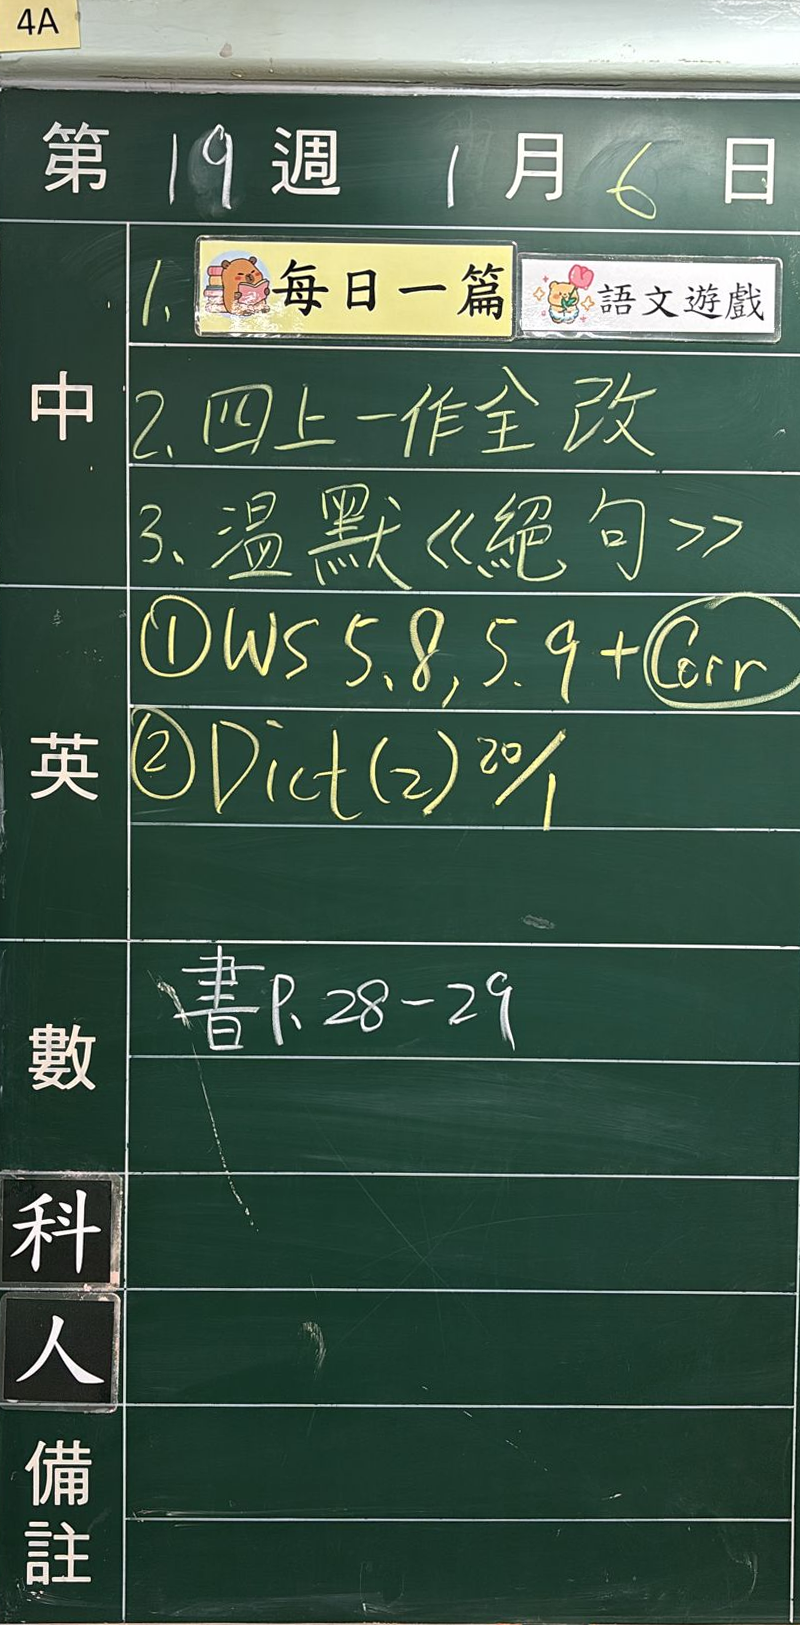 4A
第 19 週 1 月 6 日
中
1. 每日一篇 語文遊戲
2. 四上一作全改
3. 溫默《絕句》
英
① WS 5.8, 5.9 + Corr
② Dict (2) 20/1
數
書 P. 28-29
科
人
備註